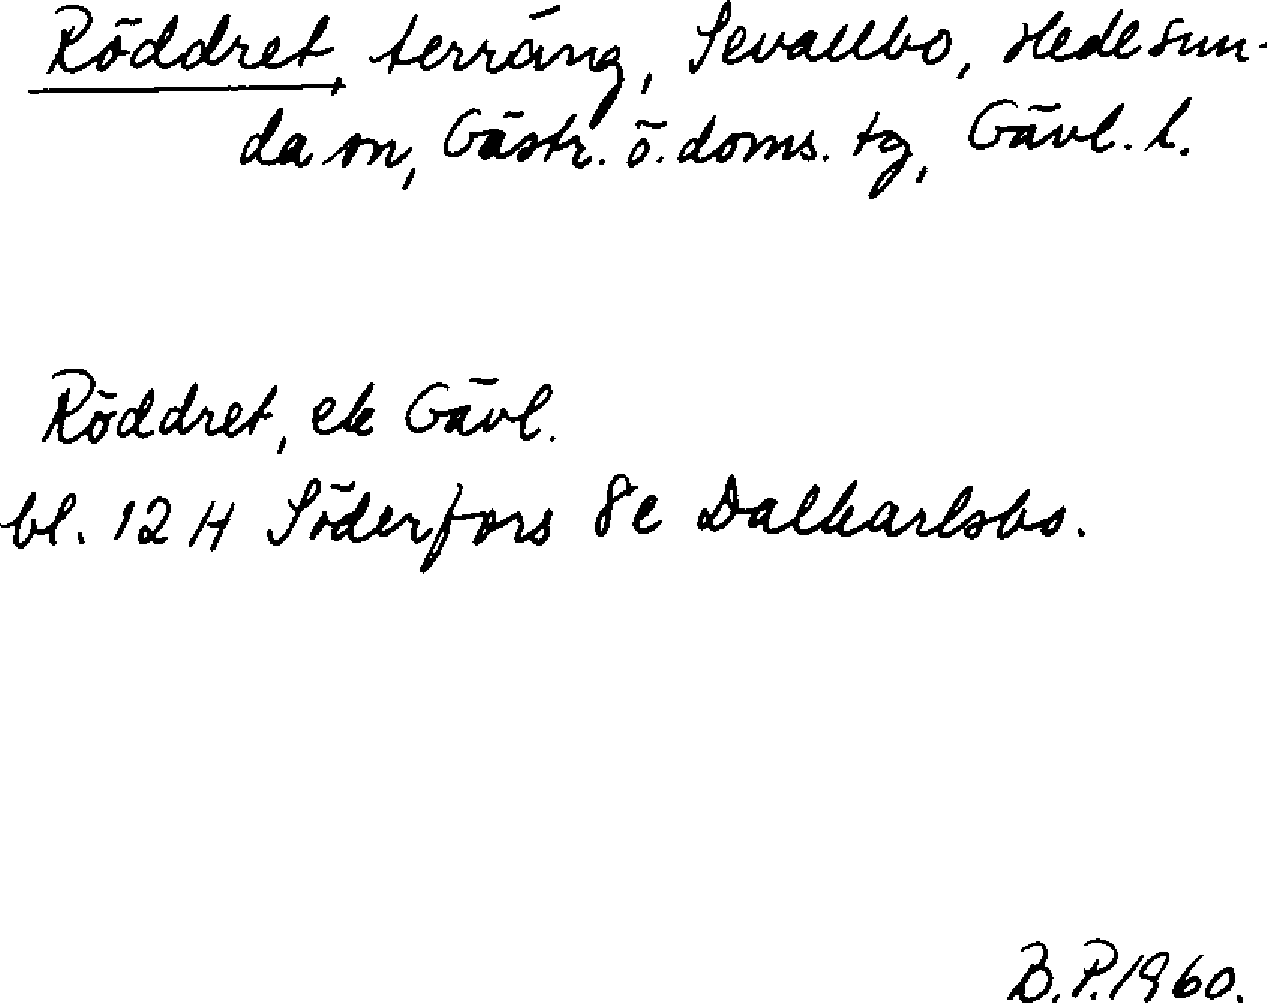 Röddret, terräng, Sevallbo, Hedesun-
da sn, Gästr. ö. doms. tg, Gävl. l.
Röddret, ek Gävl.
bl. 12 H Söderfors 8e Dalkarlsbo.
B.P. 1960.